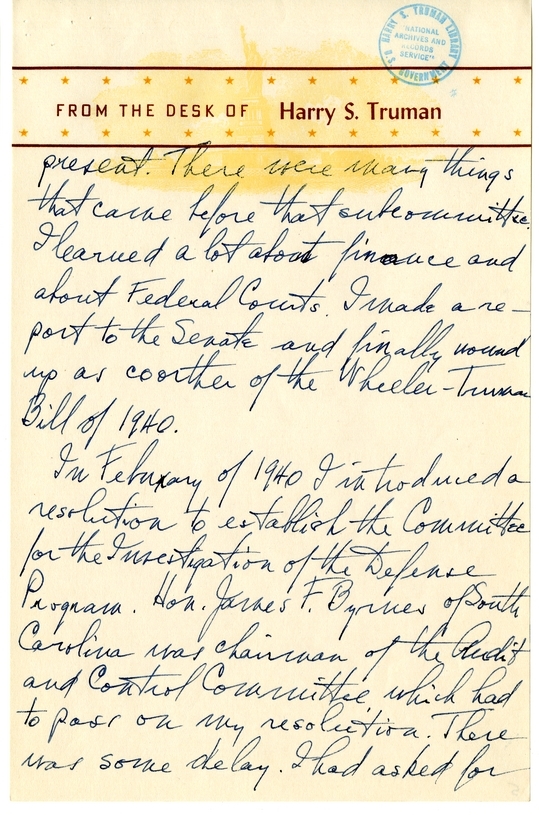 HARRY S. TRUMAN LIBRARY
"NATIONAL
ARCHIVES AND
RECORDS
SERVICE"
U.S. GOVERNMENT
FROM THE DESK OF Harry S. Truman
present. There were many things
that came before that subcommittee.
I learned a lot about finance and
about Federal Courts. I made a re-
port to the Senate and finally wound
up as coorther of the Wheeler-Truman
Bill of 1940.
In February of 1940 I introduced a
resolution to establish the Committee
for the Investigation of the Defense
Program. Hon. James F. Byrnes of South
Carolina was chairman of the Audit
and Control Committee which had
to pass on my resolution. There
was some delay. I had asked for